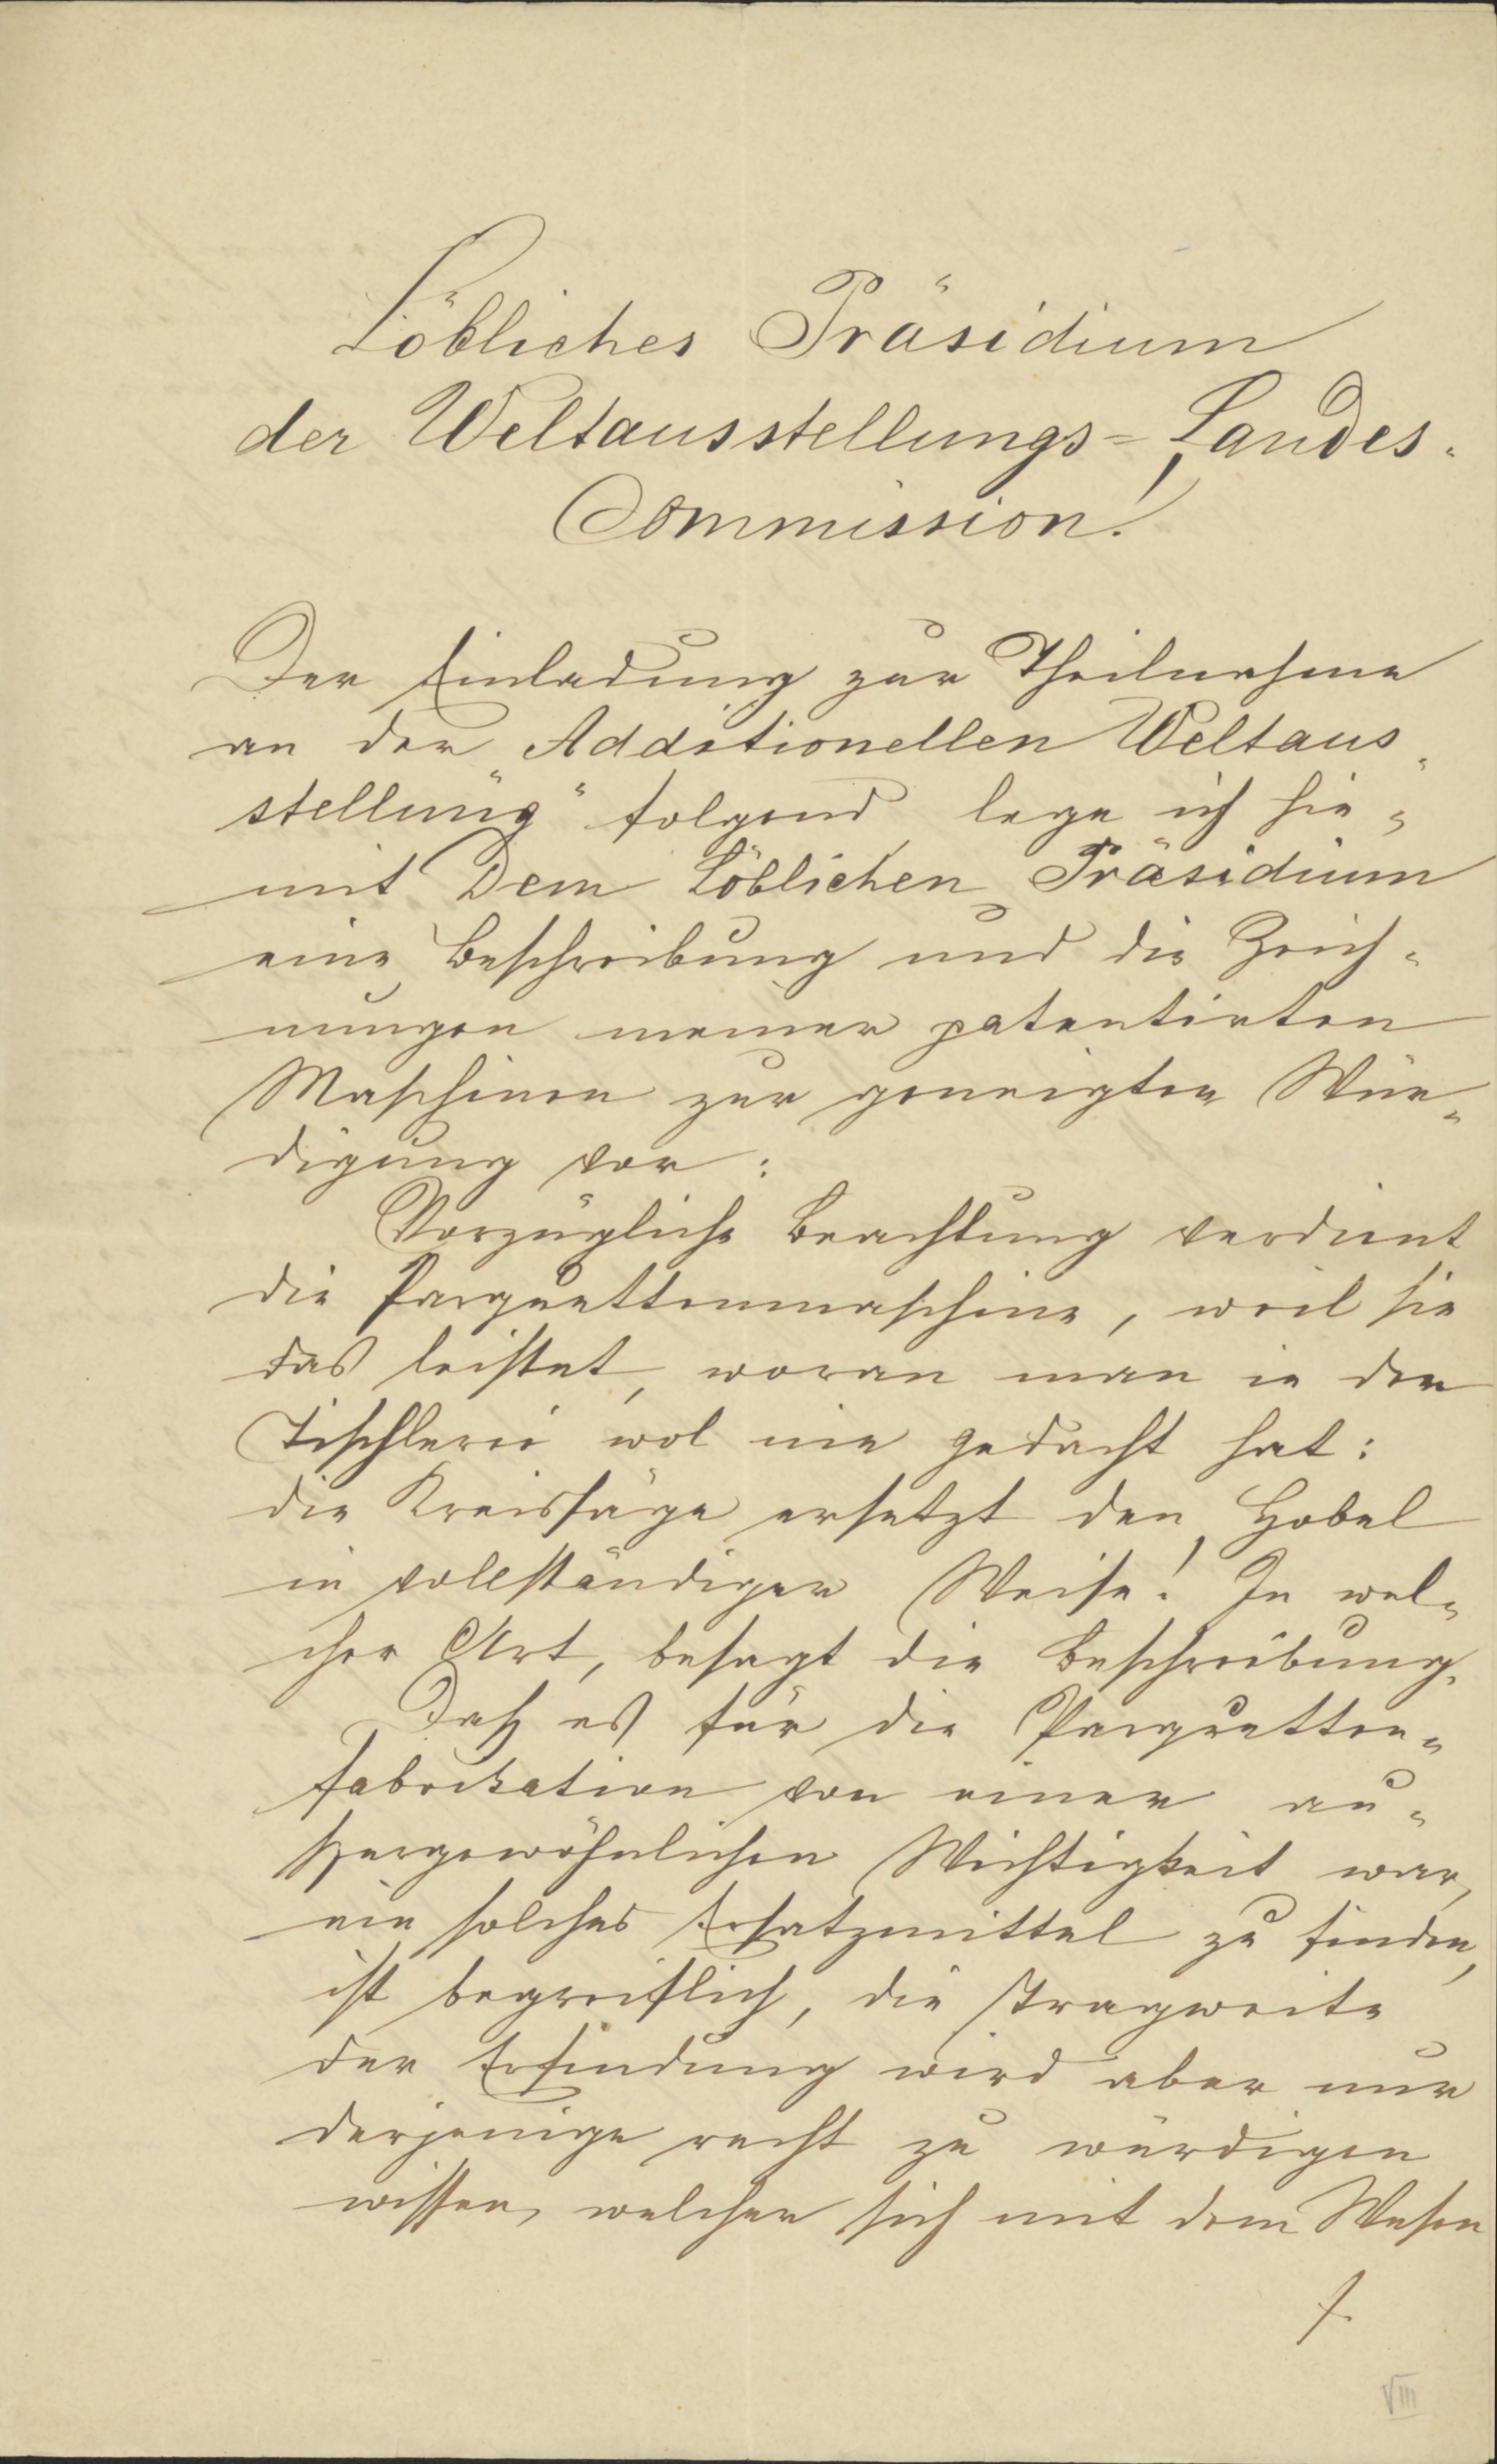 Löbliches Präsidium
der Weltausstellungs=Landes-
Commission!
Der Einladung zur Theilnahme
an der „Additionellen Weltaus-
stellung“ folgend, lege ich hie-
mit Dem Löblichen Präsidium
eine Beschreibung und die Zeich-
nungen meiner patentirten
Maschinen zur geneigten Wür-
digung vor:
Vorzügliche Beachtung verdient
die Parquettenmaschine, weil sie
das leistet, woran man in der
Tischlerei wol nie gedacht hat:
die Kreissäge ersetzt den Hobel
in vollständiger Weise! In wel-
cher Art, besagt die Beschreibung.
Daß es für die Parquetten-
fabrikation von einer au-
ßergewöhnlichen Wichtigkeit war,
ein solches Ersatzmittel zu finden,
ist begreiflich, die Tragweite
der Erfindung wird aber nur
derjenige recht zu würdigen
wissen, welcher sich mit dem Wesen
VIII